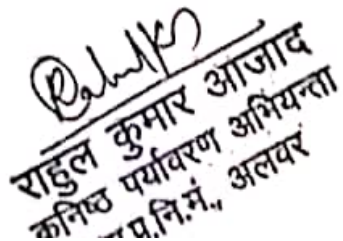 राहुल कुमार आजाद
कनिष्ठ पर्यावरण अभियन्ता
प्र.नि.मं., अलवर